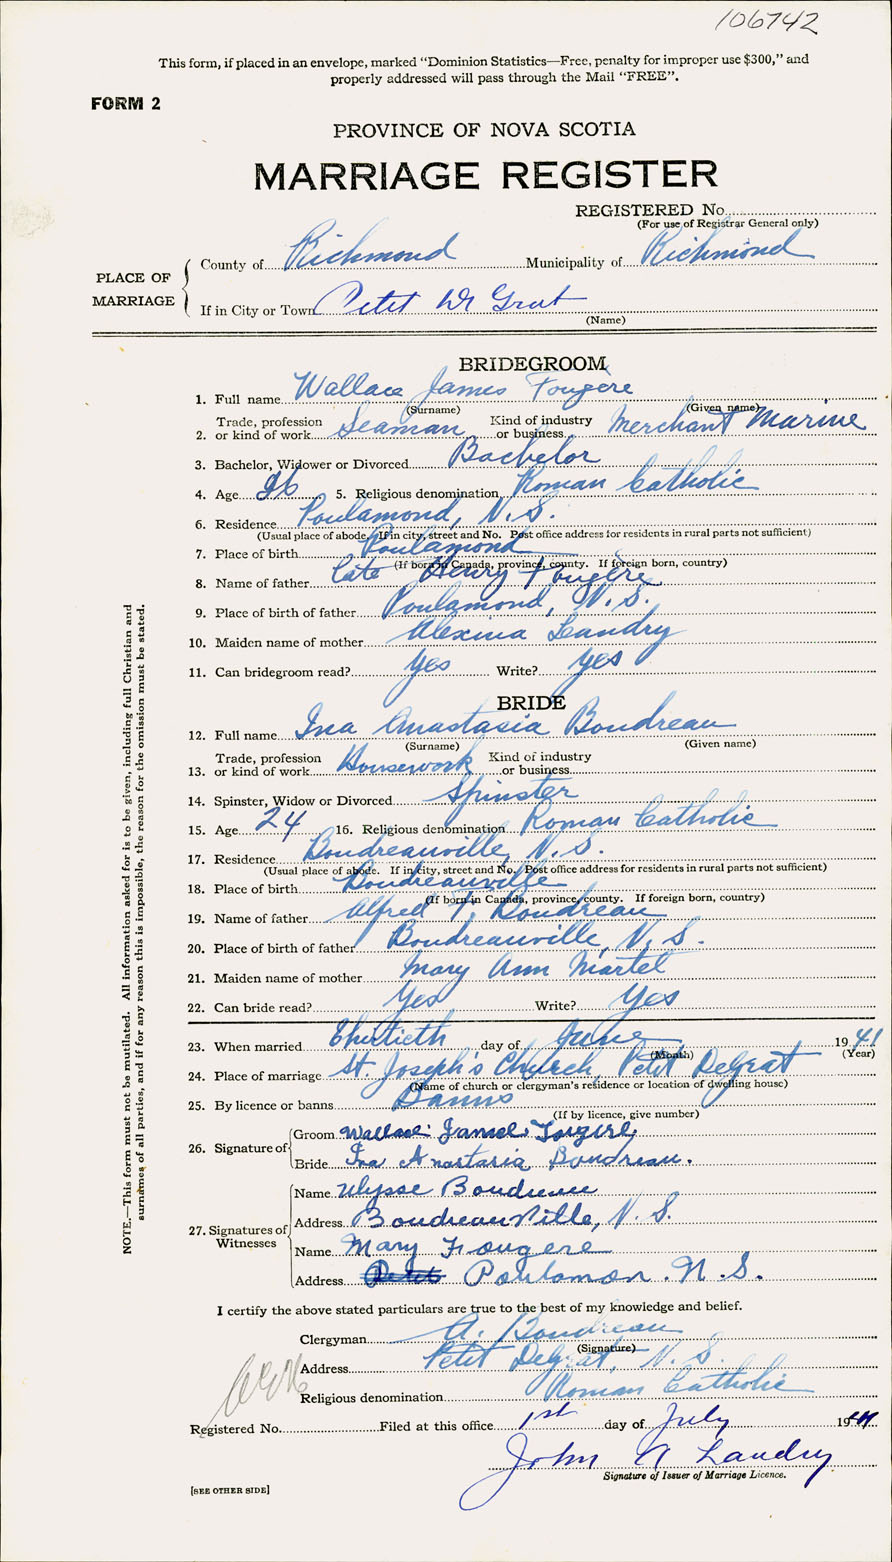 106742
This form, if placed in an envelope, marked "Dominion Statistics—Free, penalty for improper use $300," and
properly addressed will pass through the Mail "FREE".
FORM 2
PROVINCE OF NOVA SCOTIA
MARRIAGE REGISTER
REGISTERED No.
(For use of Registrar General only)
PLACE OF MARRIAGE
County of Richmond Municipality of Richmond
If in City or Town Petit De Grat
(Name)
BRIDEGROOM
1. Full name Wallace James Fougere
(Surname) (Given name)
2. Trade, profession or kind of work Seaman Kind of industry or business Merchant Marine
3. Bachelor, Widower or Divorced Bachelor
4. Age 26 5. Religious denomination Roman Catholic
6. Residence Poulamond, N.S.
(Usual place of abode. If in city, street and No. Post office address for residents in rural parts not sufficient)
7. Place of birth Poulamond
(If born in Canada, province, county. If foreign born, country)
8. Name of father Late Henry Fougère
9. Place of birth of father Poulamond, N.S.
10. Maiden name of mother Alexina Landry
11. Can bridegroom read? Yes Write? Yes
BRIDE
12. Full name Ina Anastasia Boudreau
(Surname) (Given name)
13. Trade, profession or kind of work Housework Kind of industry or business
14. Spinster, Widow or Divorced Spinster
15. Age 24 16. Religious denomination Roman Catholic
17. Residence Boudreauville, N.S.
(Usual place of abode. If in city, street and No. Post office address for residents in rural parts not sufficient)
18. Place of birth Boudreauville
(If born in Canada, province, county. If foreign born, country)
19. Name of father Alfred T. Boudreau
20. Place of birth of father Boudreauville, N.S.
21. Maiden name of mother Mary Ann Martel
22. Can bride read? Yes Write? Yes
23. When married Thirtieth day of June 1941
(Month) (Year)
24. Place of marriage St. Joseph's Church, Petit DeGrat
(Name of church or clergyman's residence or location of dwelling house)
25. By licence or banns Banns
(If by licence, give number)
26. Signature of Groom Wallace James Fougere
Bride Ina Anastasia Boudreau.
27. Signatures of Witnesses Name Ulysse Boudreau
Address Boudreauville, N.S.
Name Mary Fougere
Address Poulamon. N.S.
I certify the above stated particulars are true to the best of my knowledge and belief.
Clergyman A. Boudreau
(Signature)
Address Petit DeGrat, N.S.
Religious denomination Roman Catholic
Registered No. Filed at this office 1st day of July 1941
John A Landry
Signature of Issuer of Marriage Licence.
[SEE OTHER SIDE]
NOTE.—This form must not be mutilated. All information asked for is to be given, including full Christian and
surnames of all parties, and if for any reason this is impossible, the reason for the omission must be stated.